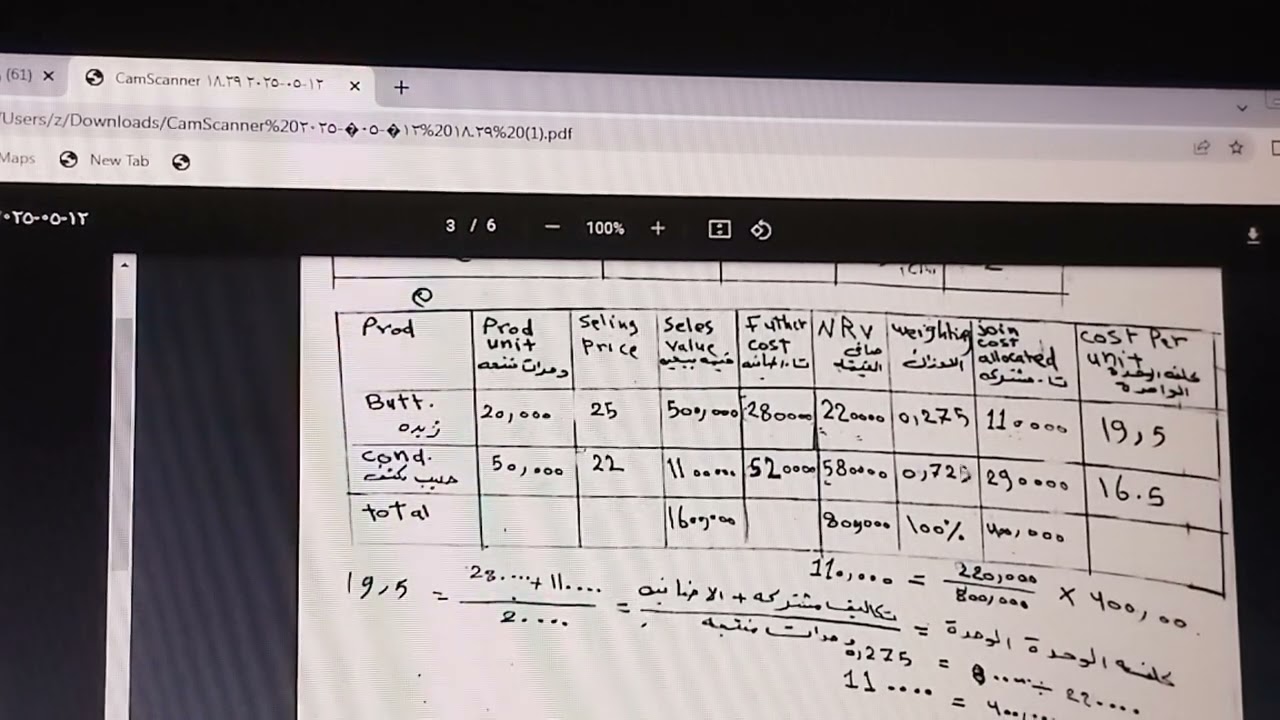 (61)
CamScanner ١٨.٢٩ ٢٠٢٥-٠٥-١٢
/Users/z/Downloads/CamScanner%20٢٠٢٥-�٠٥-�١٢%20١٨.٢٩%20(1).pdf
Maps New Tab
٢٠٢٥-٠٥-١٢
3 / 6 100%
Prod Prod unit وحدات منتجه Seling Price Seles Value قيمه بيعيه Futher Cost ت. اضافيه NRV صافي القيمه weighting الاوزان Join cost allocated ت. مشتركه Cost Per unit كلفه الوحدة الواحدة
Butt. زبده 20,000 25 500,000 280000 220000 0,275 110000 19,5
Cond. حليب مكثف 50,000 22 1100000 520000 580000 0,725 290000 16.5
total 1600,000 800,000 100% 400,000
110,000 = 220,000 / 800,000 × 400,000
19,5 = 280000 + 110000 / 20000 = تكاليف مشتركه + الاضافيه / وحدات منتجه = كلفه الوحدة الواحدة
0,275 = 800000 ÷ 220000
110000 =